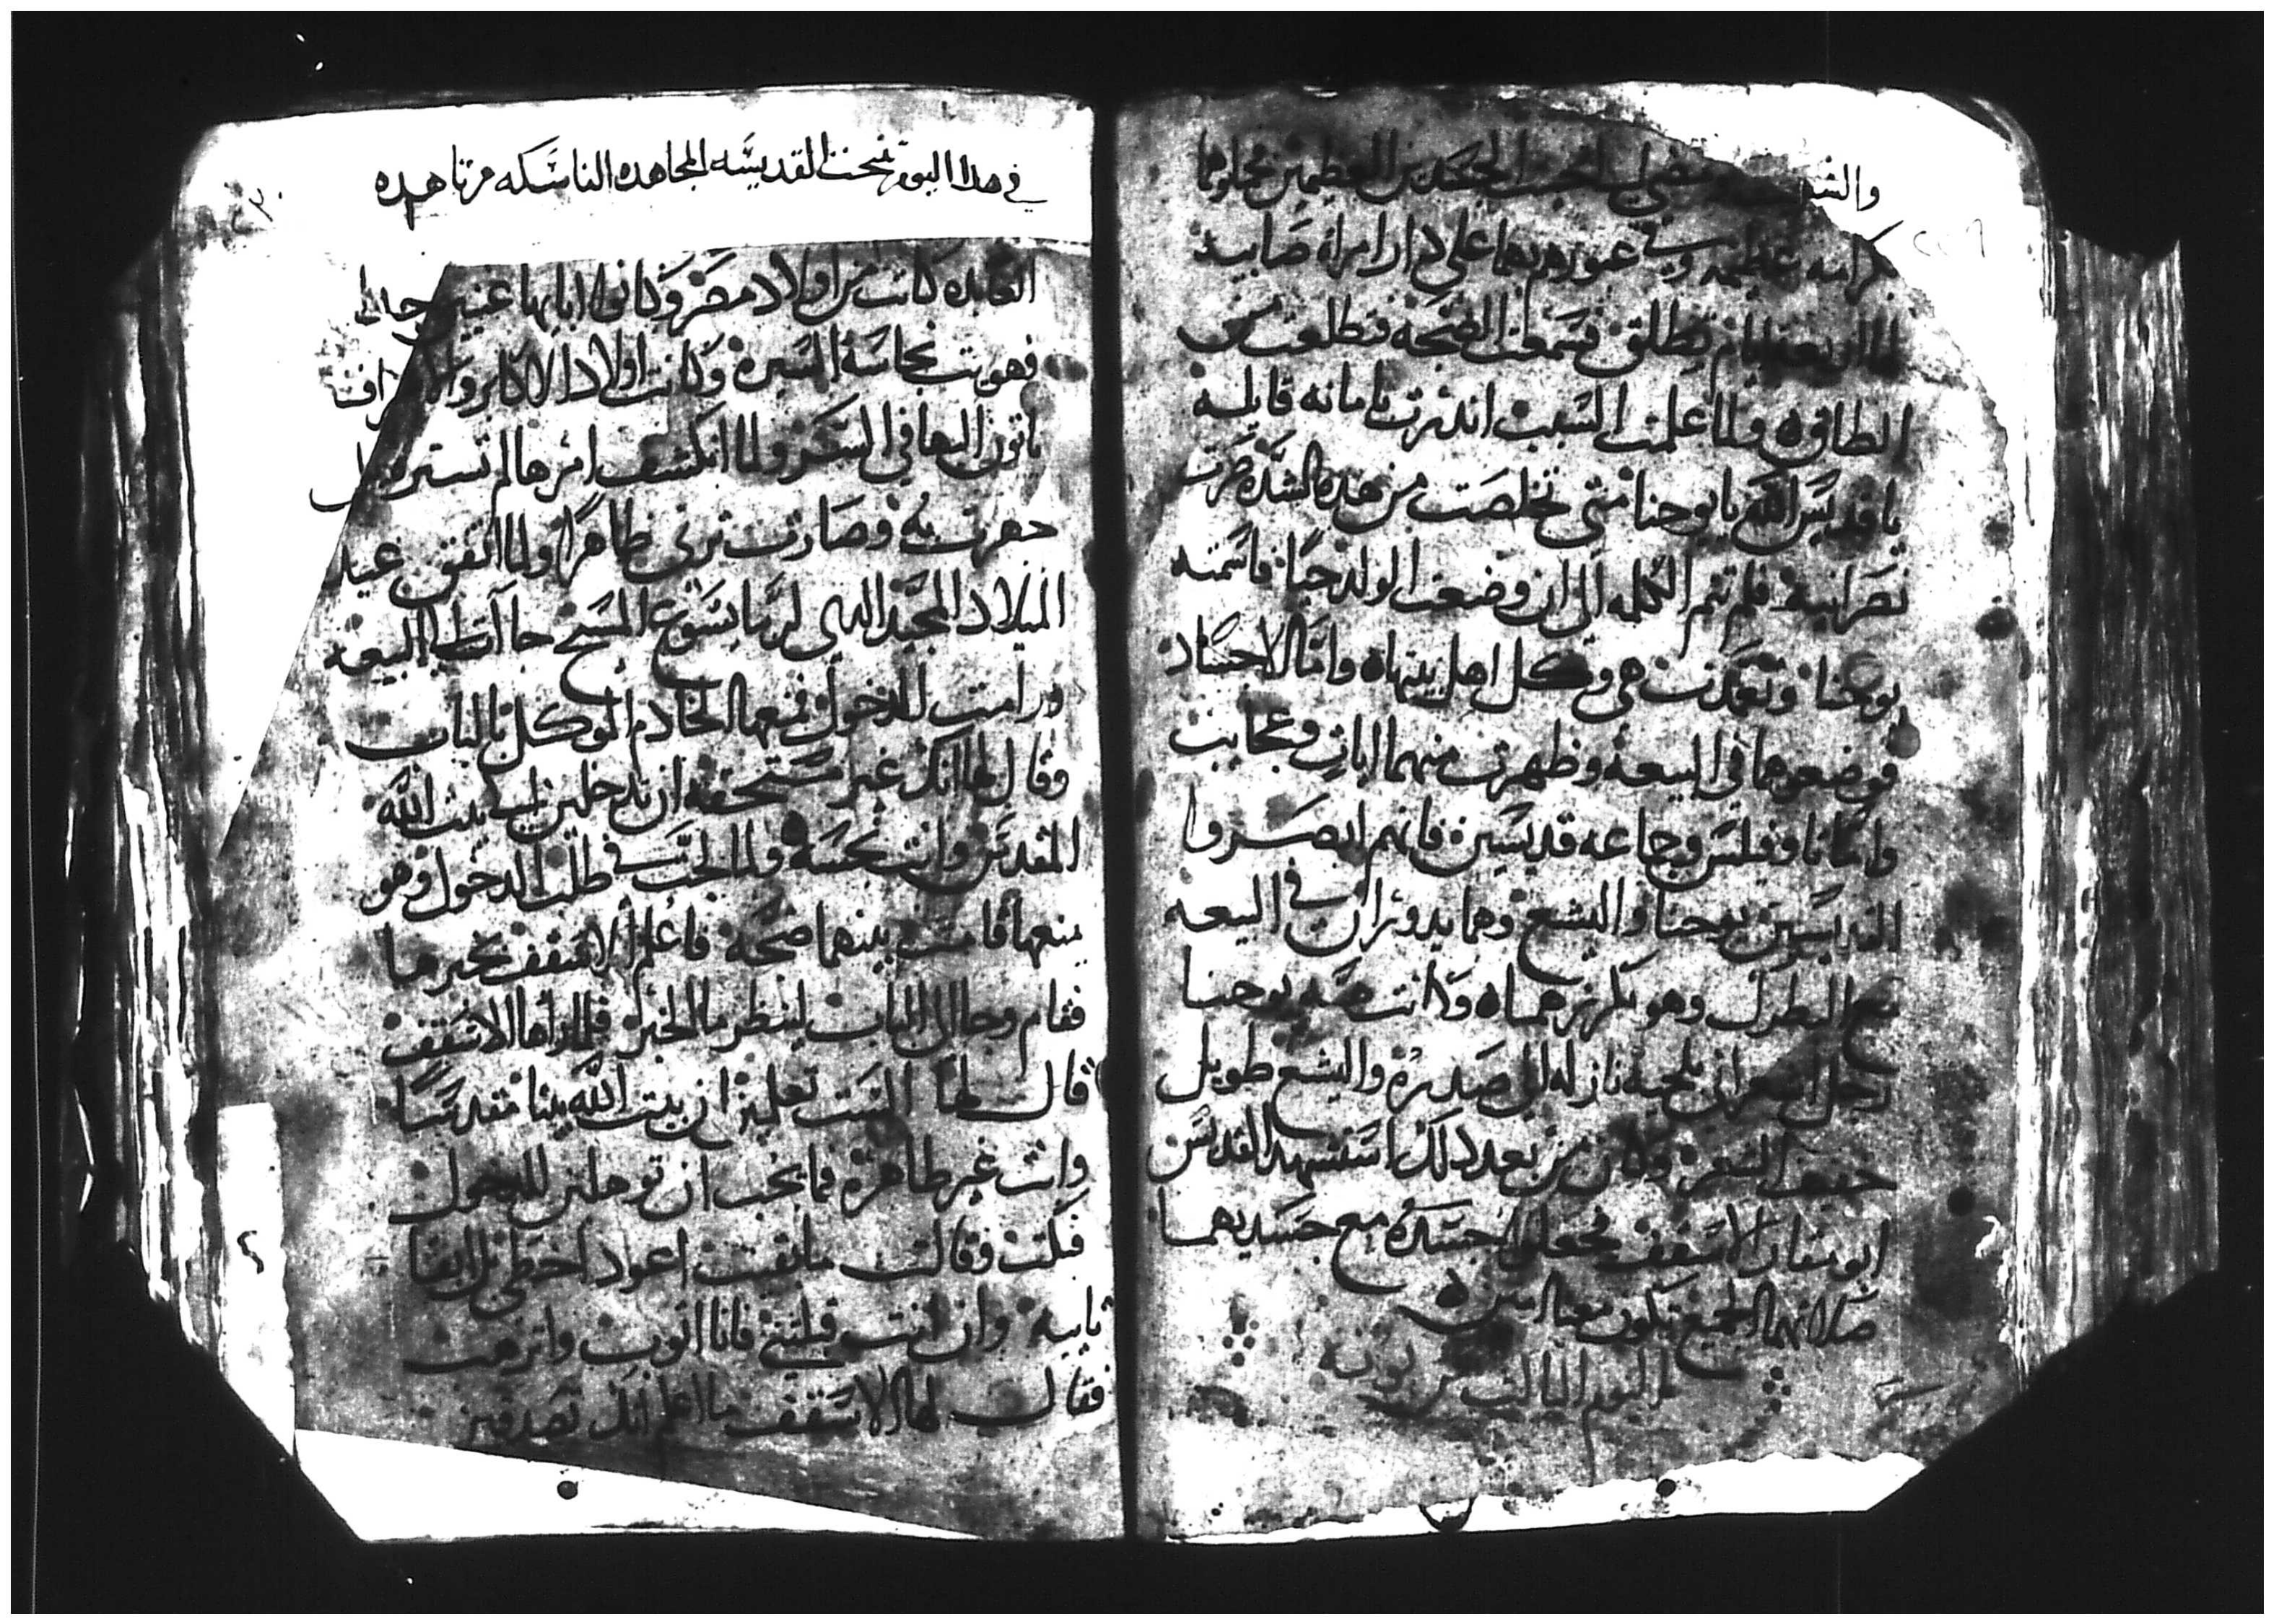 والشـ
كرامه عظيمه وفي عبورهم بهما على دار امراة صابيه
لها اربعة ايام تطلق فسمعت الضجه فتطلعت من
الطاقه ولما علمت السبب اندرت بامانه قايله
يا قديس الله يا يوحنا متى تخلصت من هده الشده صرت
نصرانية فلم تتم الكلمه الى ان وضعت الولد حيا فاسمته
يوحنا وتعمدت هي وكل اهل بيتها واما الاجساد
فوضعوهما في البيعه وظهرت منهما ايات وعجايب
واما تاوفيلس وجماعه قديسين فانهم ابصروا
القديسين يوحنا واليشع وهما يدوران في البيعه
مع البطرك وهو يكرز هما وكانت صفه يوحنا
رجل اشعراني بلحيه نازله الى صدره واليشع طويل
خفيف الشعر وكان من بعد دلك استشهد القديس
ابو مقار الاسقف فجعلوا جسده مع جسديهما
صلاتهما الجميع تكون معنا امين
اليوم التالت من بوونه
في هدا اليوم تنيحت القديسه المجاهده الناسكه مرتا هده
العابده كانت من اولاد مصر وكانوا ابايها غنيين جدا
فهويت نجاسة السيره وكانت اولاد الاكابر والاشراف
ياتون اليها في السكر ولما انكشف امرها لم تستتر بل
جهرت به وصارت تزني ظاهرا ولما اتفق عيد
الميلاد المجيد الدي لربنا يسوع المسيح جاات الى البيعه
ورامت للدخول فمنعها الخادم الموكل بالباب
وقال لها انك غير مستحقه ان تدخلين الى بيت الله
المقدس وانت نجسه ولما لجت في طلب الدخول وهو
يمنعها قامت بينهما ضجه فاعلم الاسقف بخبرها
فقام وجا الى الباب لينظر ما الخبر فلما راها الاسقف
قال لها الست تعلمين ان بيت الله بيتا مقدسا
وانت غير طاهره فما يجب ان تؤهلين للدخول
فبكت وقالت ما بقيت اعود اخطي بل ابقا
تايبه وان انت قبلتني فانا اتوب واترهب
فقال لها الاسقف ما اعلم انك تصدقين